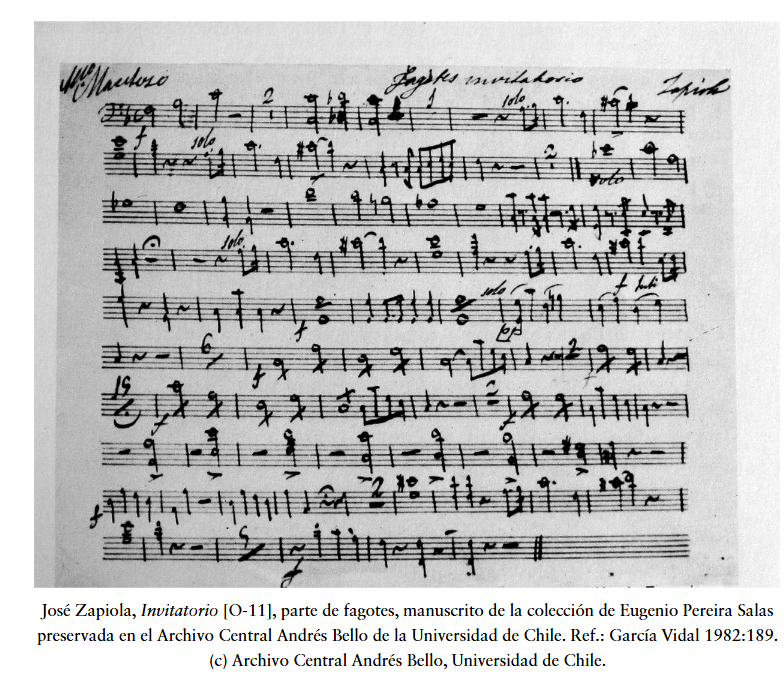 Mtto Maestoso
Fagotes invitatorio
Zapiola
2
1
solo
f
solo
2
solo
solo
solo
f tutti
f
pp
6
f
2
f
19
f
f
f
2
5
f
José Zapiola, Invitatorio [O-11], parte de fagotes, manuscrito de la colección de Eugenio Pereira Salas
preservada en el Archivo Central Andrés Bello de la Universidad de Chile. Ref.: García Vidal 1982:189.
(c) Archivo Central Andrés Bello, Universidad de Chile.